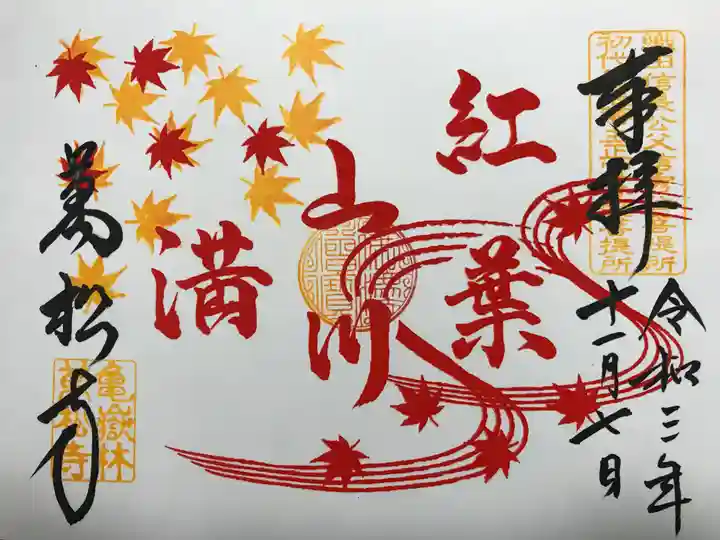 奉拝
令和三年
十一月七日
織田信長公父 菩提所
初代 菩提所
紅葉
山川
満
萬松寺
亀嶽林
萬松寺